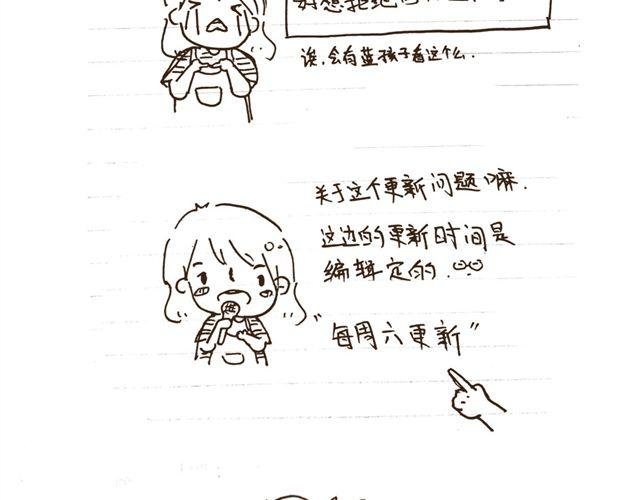 好想拒绝
诶,会有蓝孩子看这个么.
关于这个更新问题嘛.
这边的更新时间是
编辑定的.
"每周六更新"